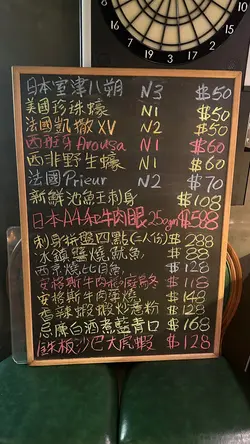 日本室津八朔 N3 $50
美國珍珠蠔 N1 $50
法國凱撒XV N2 $50
西班牙Arousa N1 $60
西非野生蠔 N1 $60
法國Prieur N2 $70
新鮮池魚王刺身 $108
日本A4紅牛肉眼 250gm $588
刺身拼盤四點(二人份) $288
冰鎮鹽燒魷魚 $88
西京燒比目魚 $128
安格斯牛肉 $118
安格斯牛肉 $148
香辣蝦 炒意粉 $128
忌廉白酒煮藍青口 $168
鐵板沙巴大虎蝦 $128